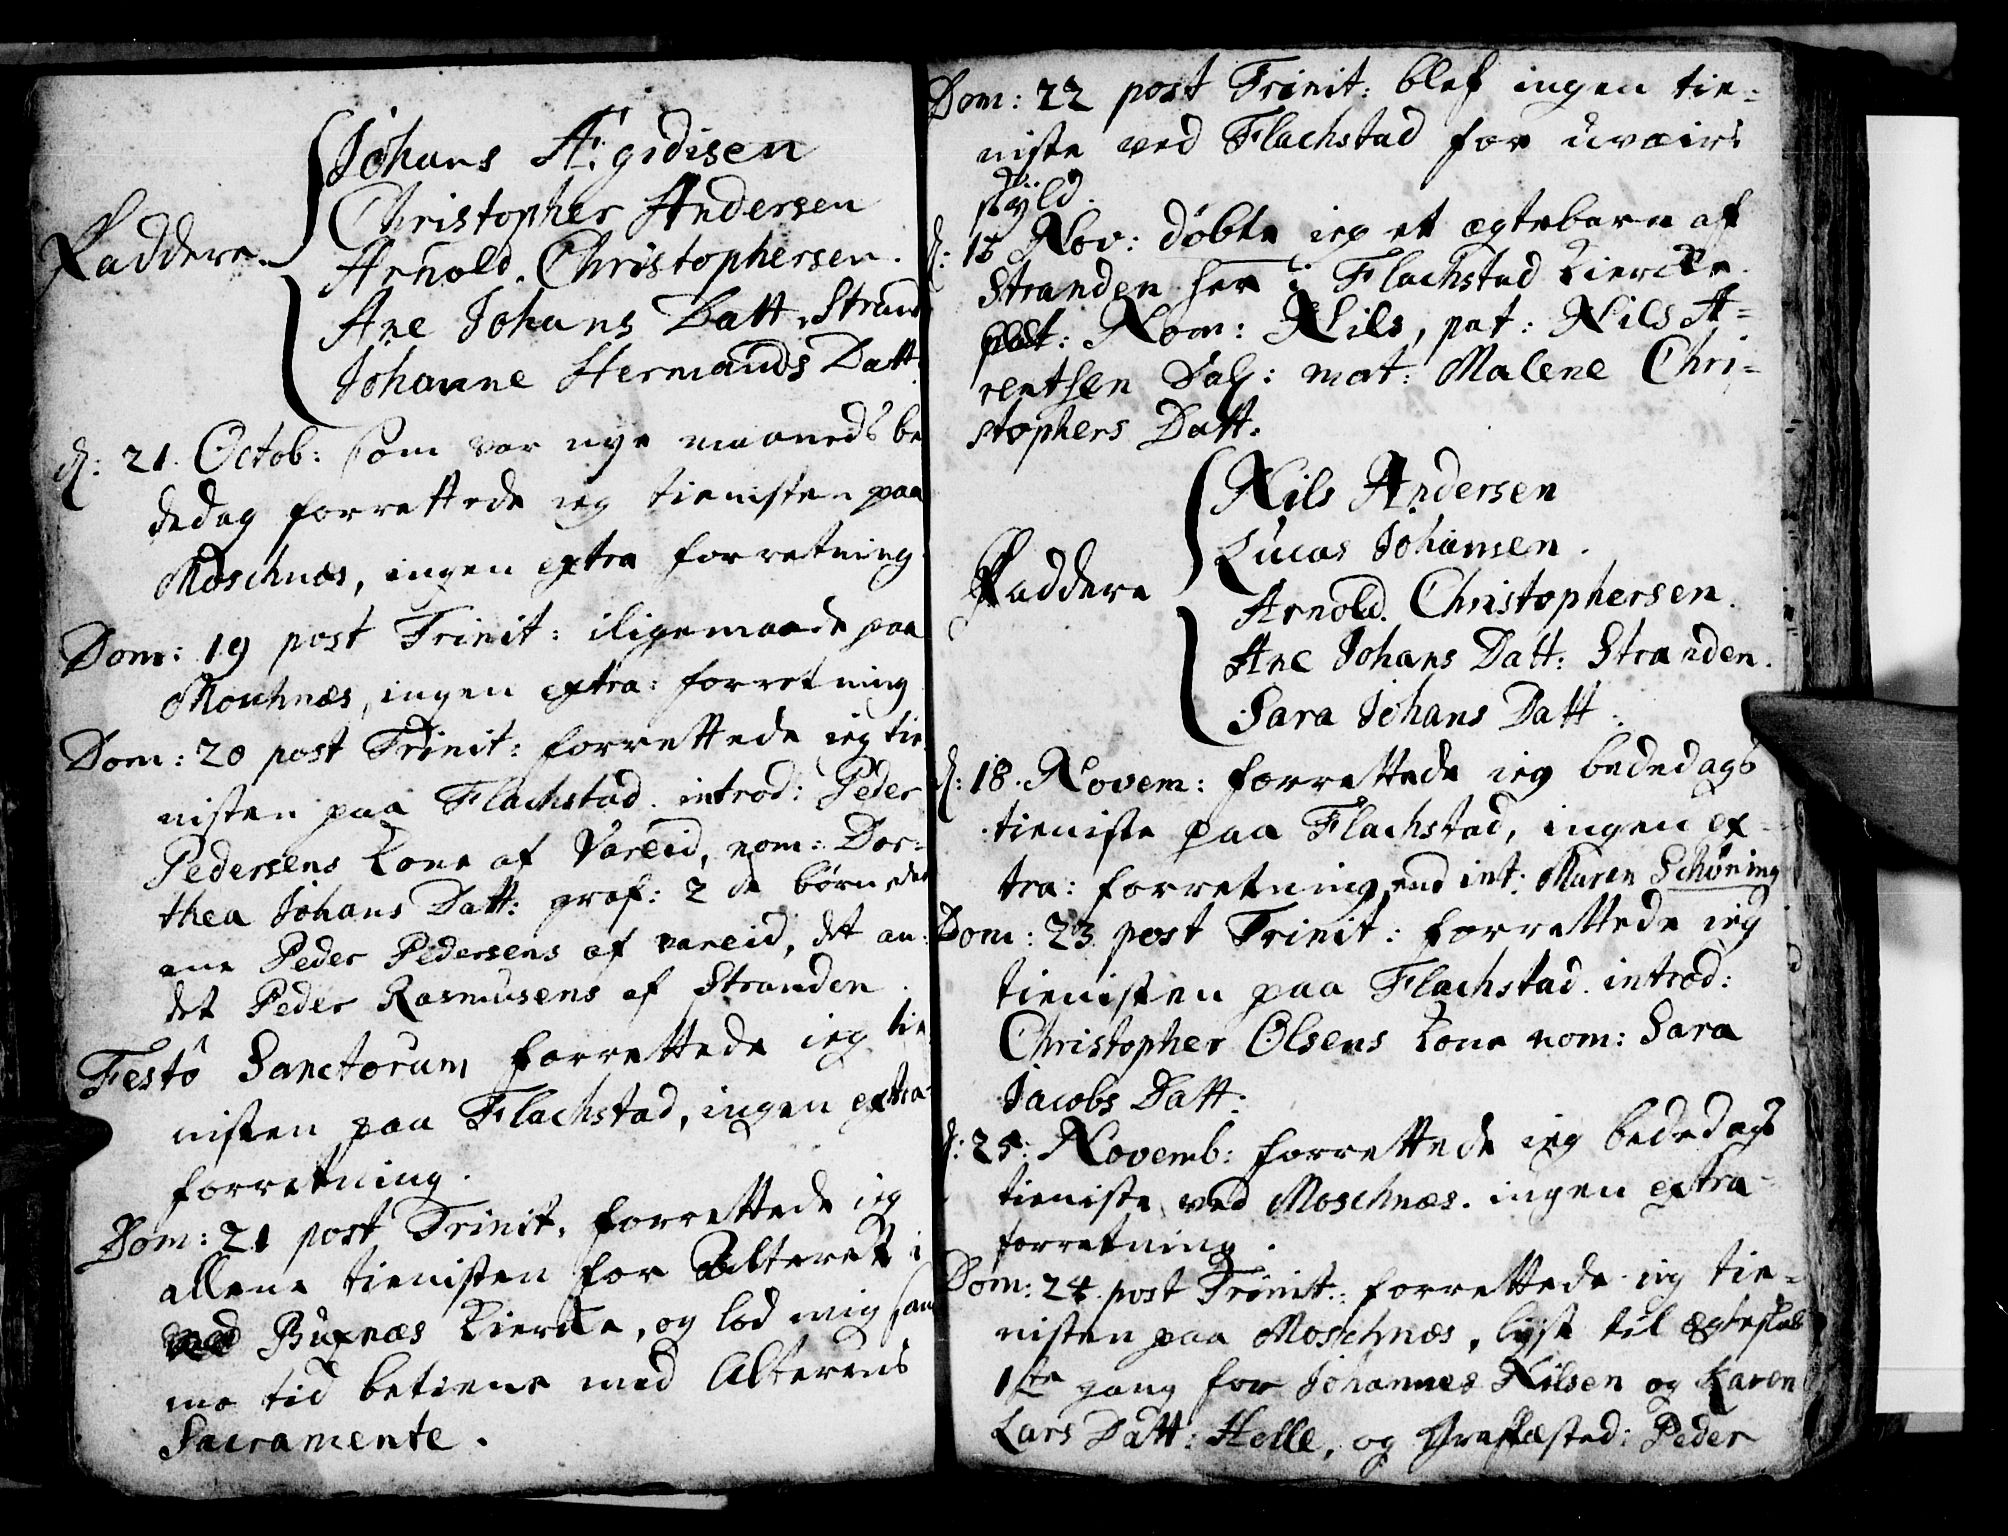 Johans Ægidisen
Christopher Andersen
Faddere. Arnold. Christophersen.
Ane Johans Datt. Strand
Johanne Hermands Datt.
d: 21. Octob: som var nye maaneds be
dedag forrettede ieg tienisten paa
Moschnæs, ingen extra forretning
Dom: 19 post Trinit: iligemaade paa
Moschnæs, ingen extra: forretning
Dom: 20 post Trinit: forrettede ieg tie
nisten paa Flachstad. introd: Peder
Pedersens Kone af Vareid, nom: Dor-
thea Johans Datt: graf: 2 de børn det
ene Peder Pedersens af vareid, det an-
det Peder Rasmusens af Stranden.
Festo Sanctorum forrettede ieg tie
nisten paa Flachstad, ingen extra-
forretning.
Dom: 21 post Trinit. forrettede ieg
allene tienisten for Alteret i
Buxnæs Kiercke, og lod mig sam
me tid betiene med Alterens
Sacramente.
Dom: 22 post Trinit: blef ingen tie-
niste ved Flachstad for uvæirs
skyld.
d: 15 Nov: døbte ieg et ægtebarn af
Stranden her i Flachstad Kiercke.
Nom: Nils, pat: Nils A-
rentsen Dal: mat: Malene Chri-
stophers Datt.
Nils Andersen
Lucas Johansen.
Faddere Arnold. Christophersen.
Ane Johans Datt: Stranden.
Sara Johans Datt.
d: 18. Novem: forrettede ieg bededags
tieniste paa Flachstad, ingen ex-
tra: forretning, end int: Maren Schøning
Dom: 23 post Trinit: forrettede ieg
tienisten paa Flachstad. introd:
Christopher Olsens Kone nom: Sara
Jacobs Datt:
d: 25: Novemb: forrettede ieg bededags
tieniste ved Moschnæs. ingen extra-
forretning.
Dom: 24 post Trinit: forrettede ieg tie-
nisten paa Moschnæs, lyst til ægteskab
1ste gang for Johannes Nilsen og Karen
Lars Datt: Helle, og Græfæsted: Peder